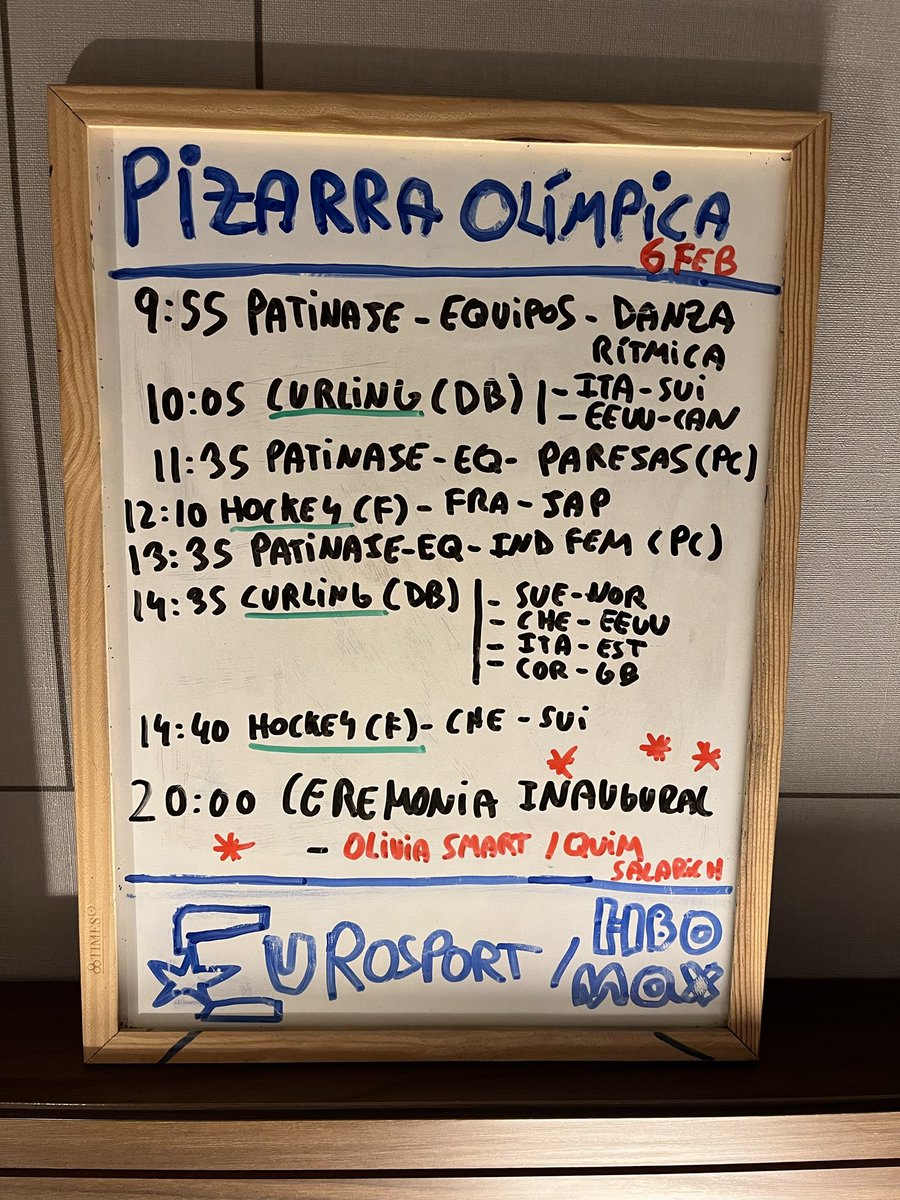 PIZARRA OLÍMPICA
6 FEB
9:55 PATINAJE - EQUIPOS - DANZA
RÍTMICA
10:05 CURLING (DB) - ITA - SUI
- EEUU - CAN
11:35 PATINAJE - EQ - PAREJAS (PC)
12:10 HOCKEY (F) - FRA - JAP
13:35 PATINAJE - EQ - IND FEM (PC)
14:35 CURLING (DB) - SUE - NOR
- CHE - EEUU
- ITA - EST
- COR - GB
14:40 HOCKEY (F) - CHE - SUI
20:00 CEREMONIA INAUGURAL
- OLIVIA SMART / QUIM
SALARICH
EUROSPORT / HBO
MAX
TIMES